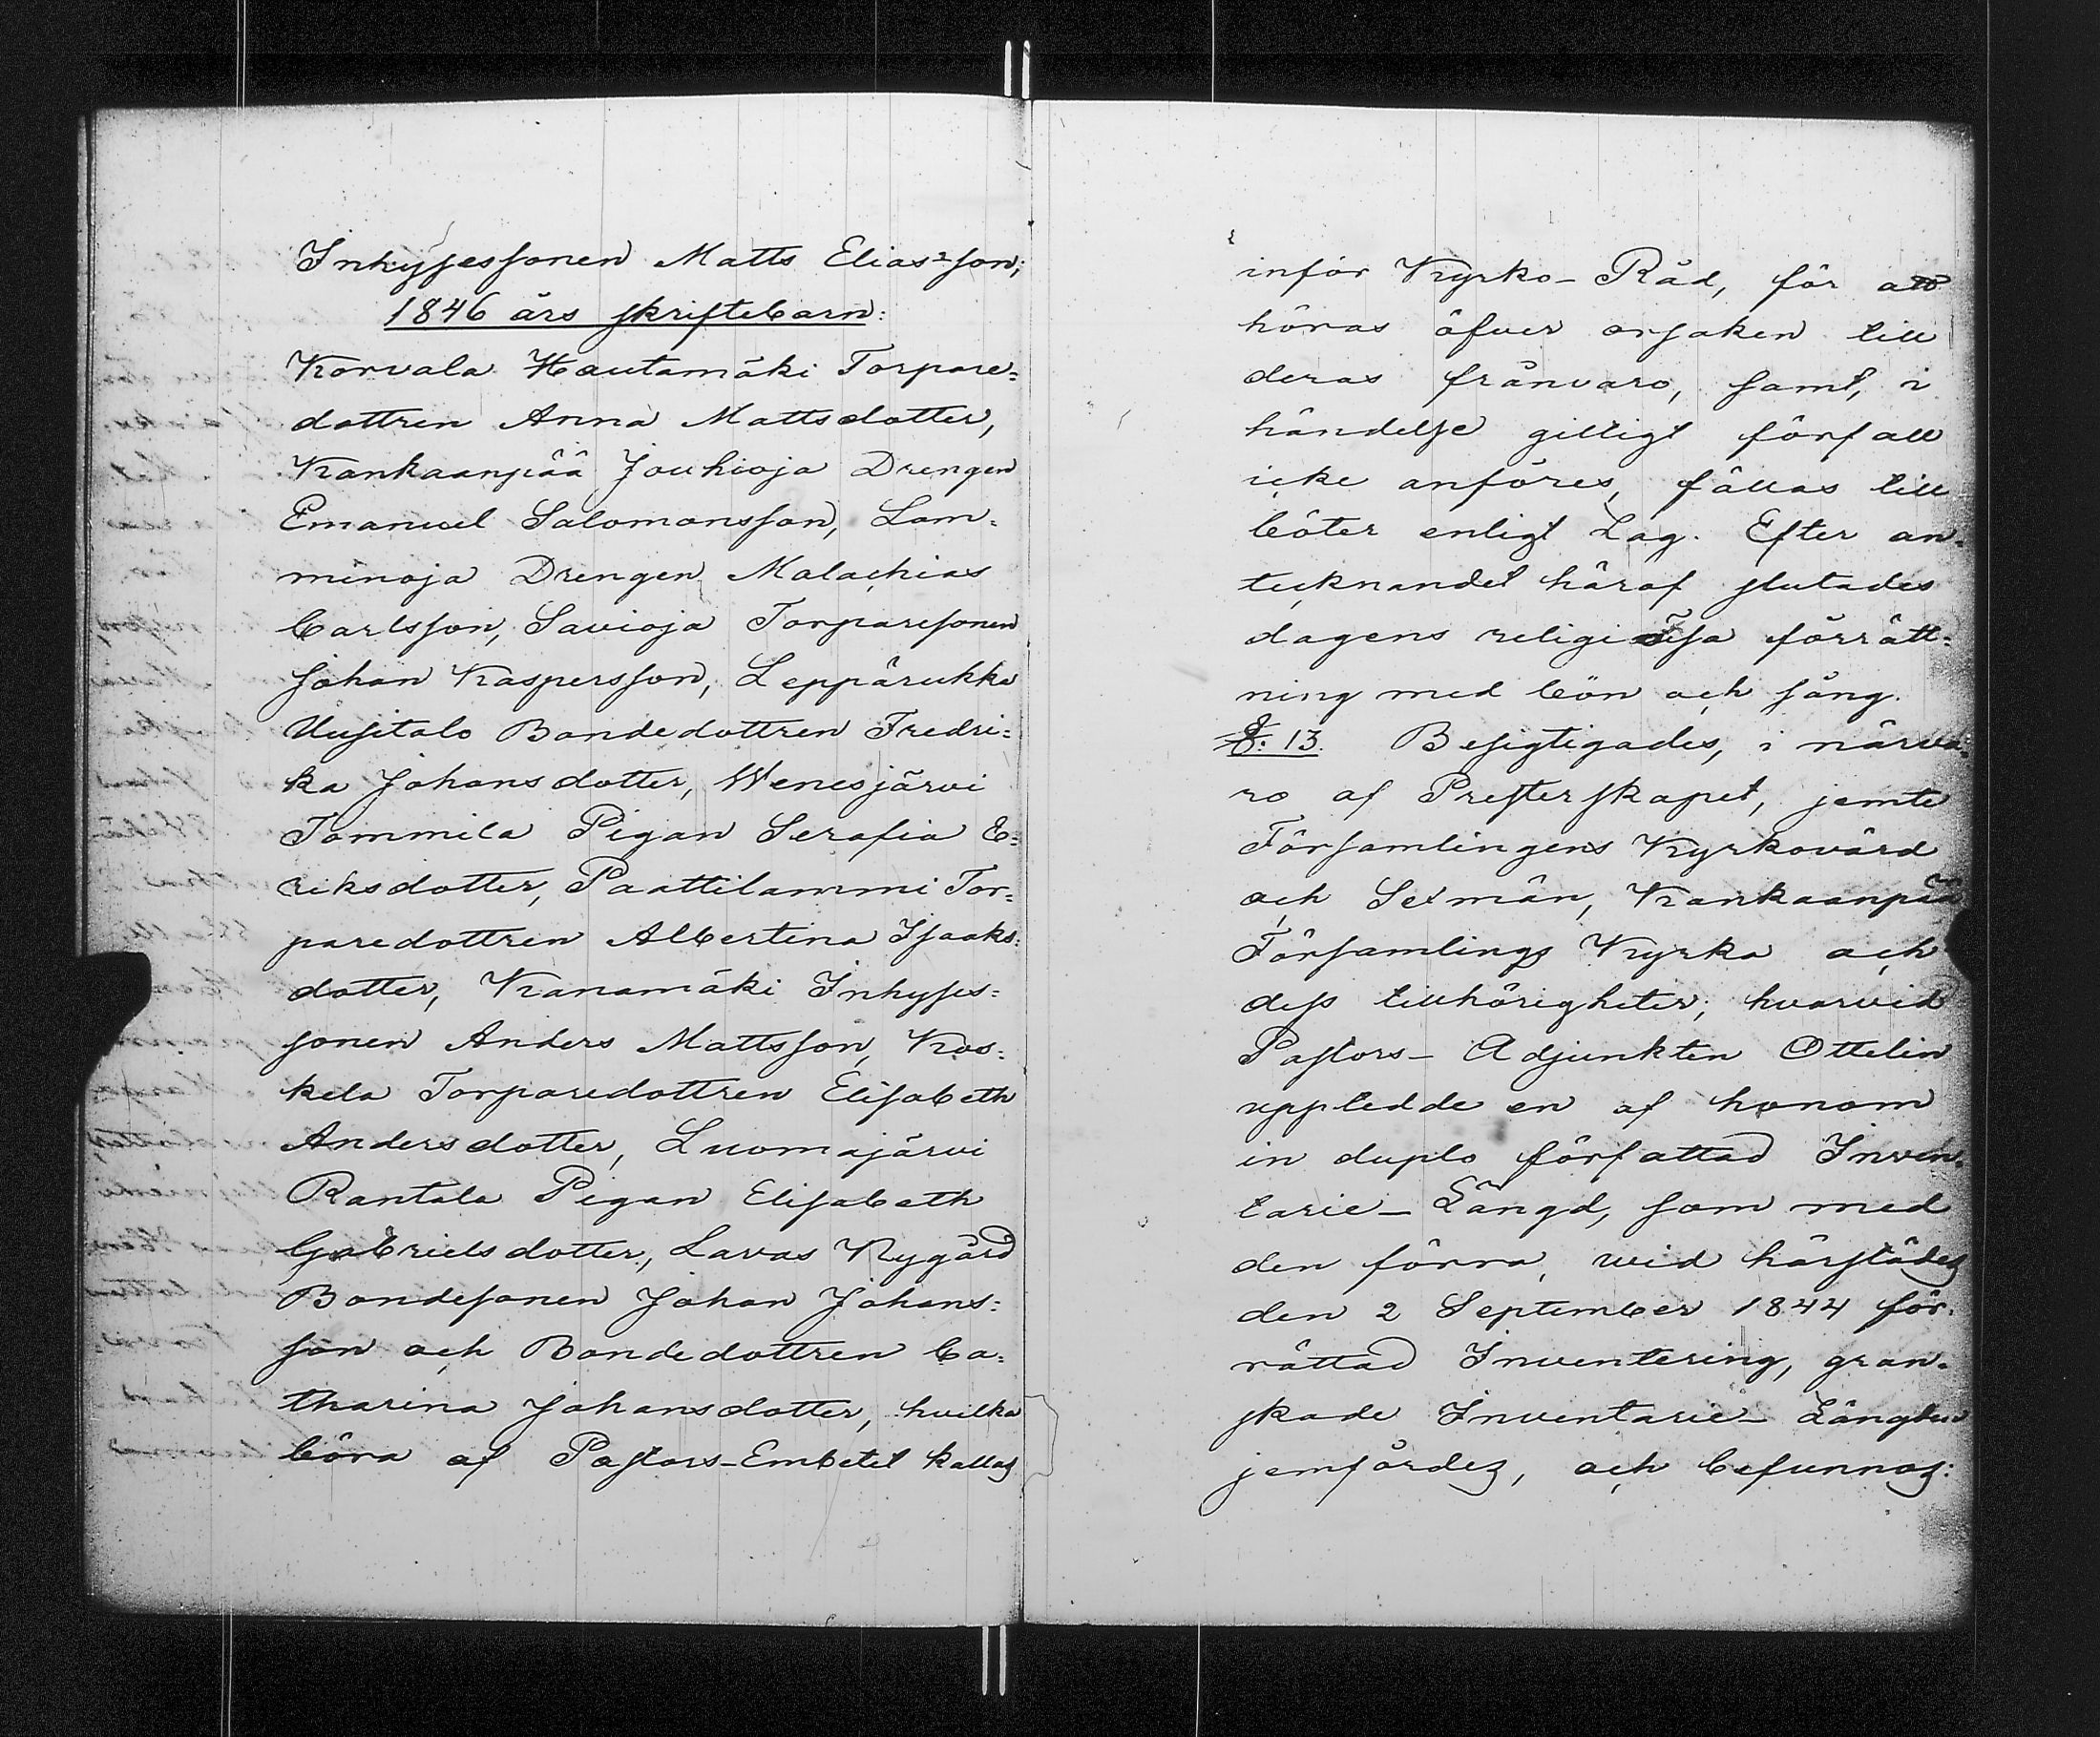 Inhyssessonen Matts Elias-son;
1846 års skriftebarn:
Korvala Hautamäki Torpare=
dottren Anna Mattsdotter,
Kankaanpää Jouhioja Drengen
Emanuel Salomonsson, Lam=
minoja Drengen Malachias
Carlsson, Savioja Torparesonen
Johan Kaspersson, Leppärukka
Uusitalo Bondedottren Fredri=
ka Johansdotter, Wenesjärvi
Tommila Pigan Serafia E=
riksdotter, Paattilammi Tor=
paredottren Albertina Isaaks=
dotter, Kanamäki Inhyses=
sonen Anders Mattsson, Kos=
kela Torparedottren Elisabeth
Andersdotter, Luomajärvi
Rantala Pigan Elisabeth
Gabrielsdotter, Lavas Nygård
Bondesonen Johan Johans=
son och Bondedottren Ca=
tharina Johansdotter, hvilka
böra af Pastors-Embetet kallas
inför Kyrko-Råd, för att
höras öfver orsaken till
deras frånvaro, samt, i
händelse gilligt förfall
icke anföres, fällas till
böter enligt Lag. Efter an=
tecknandet häraf slutades
dagens religiösa förrätt=
ning med bön och sång.
§. 13. Besigtigades, i närva=
ro af Presterskapet, jemte
Församlingens Kyrkovärd
och Sexmän, Kankaanpää
Församlings Kyrka och
dess tillhörigheter; hvarvid
Pastors-Adjunkten Ottelin
uppledde en af honom
in duplo författad Inven=
tarie-Längd, som med
den förra, wid härstädes
den 2 September 1844 för=
rättad Inventering, gran=
skade Inventarie-Längden
jemfördes, och befunnos: